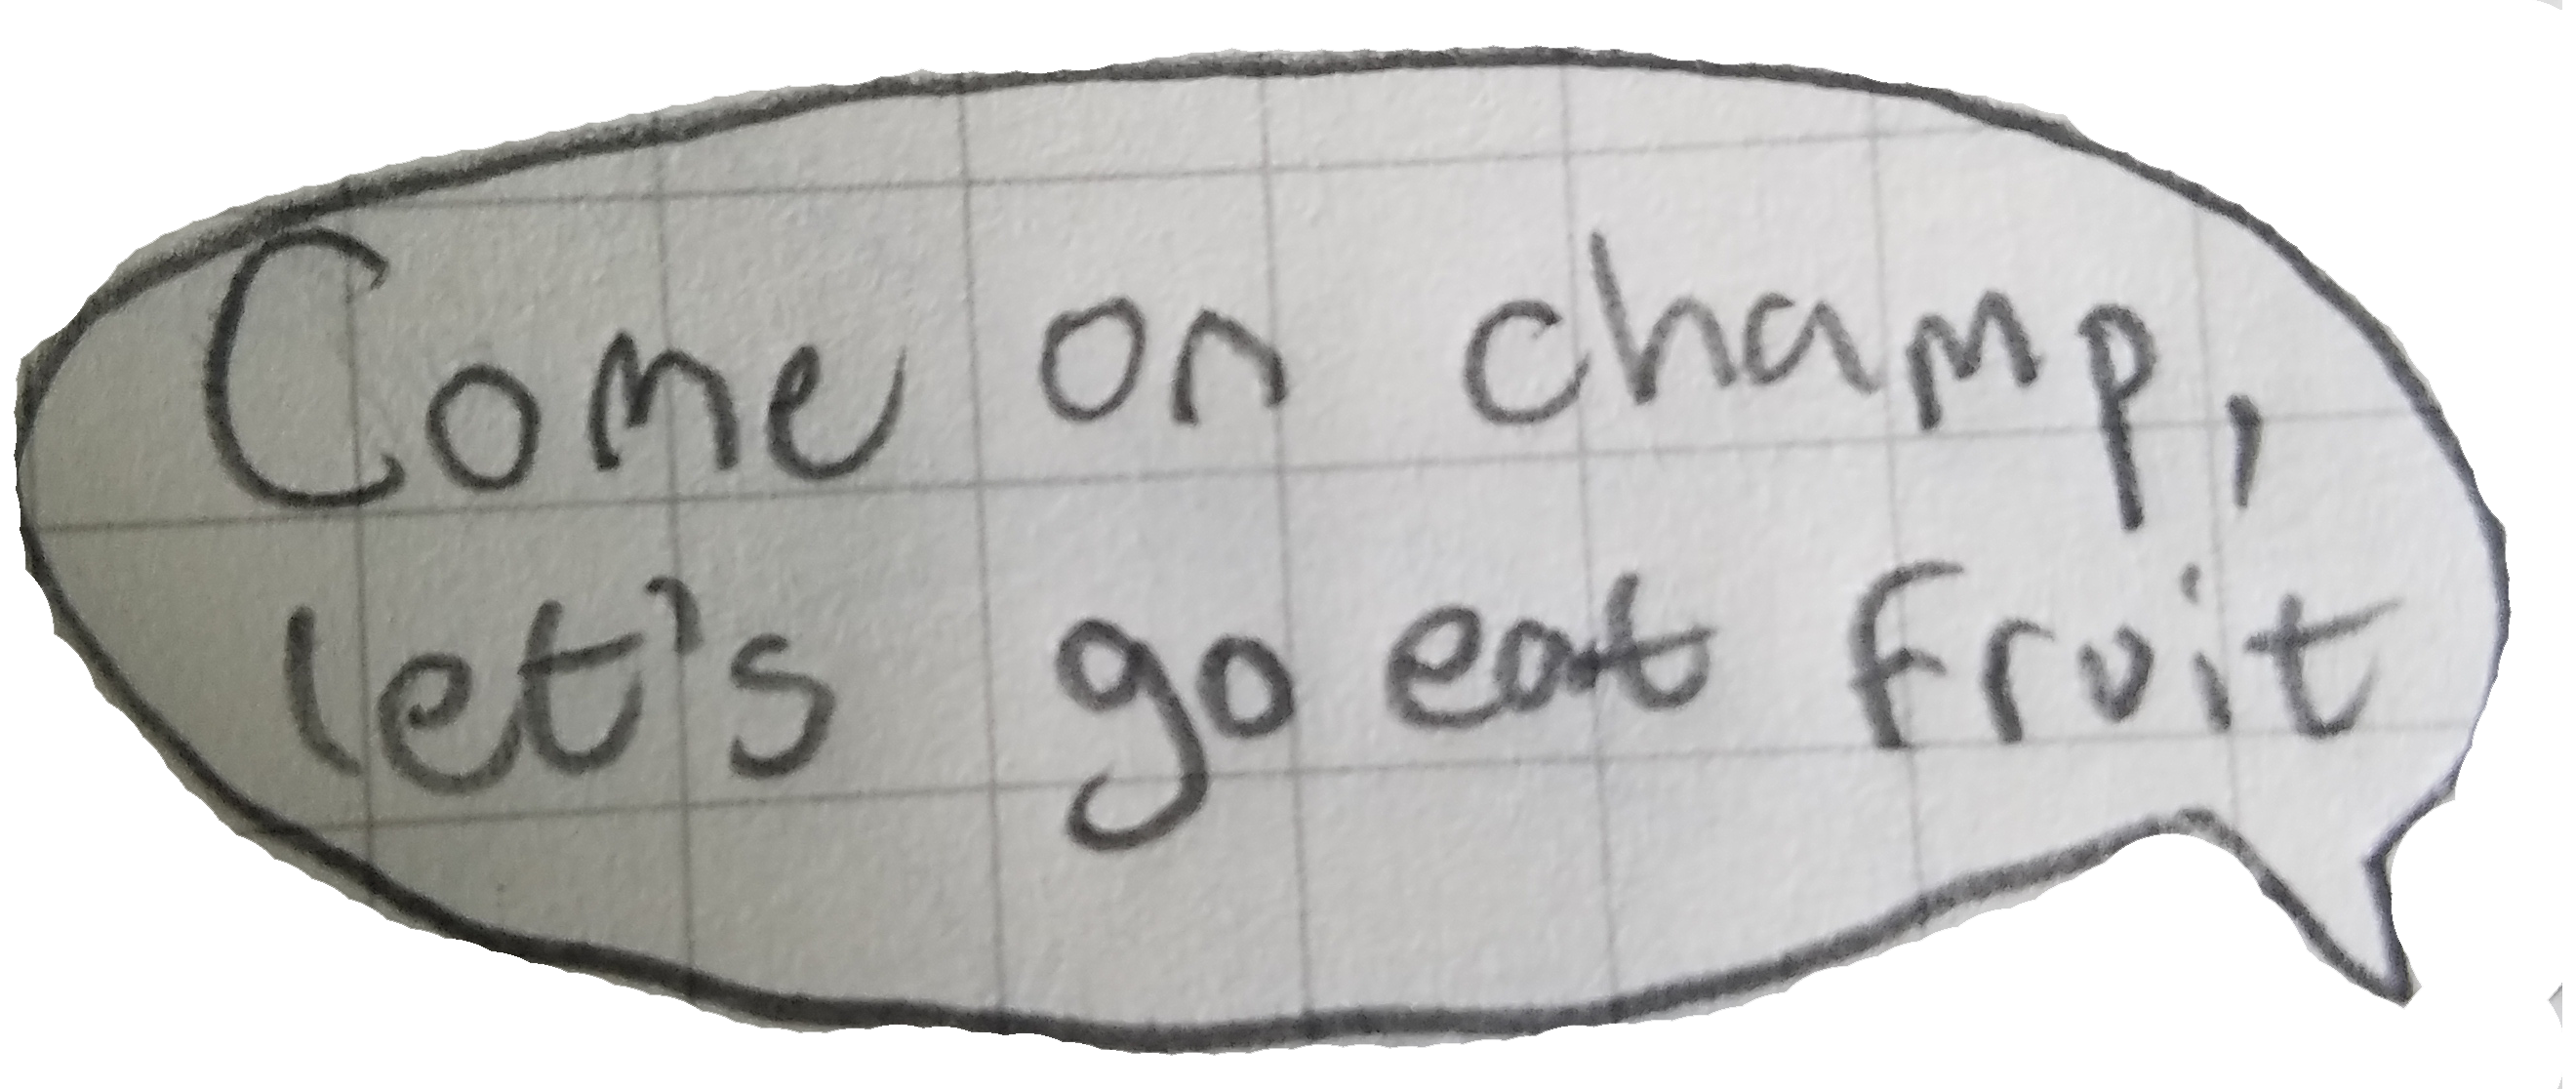 Come on champ,
let's go eat fruit